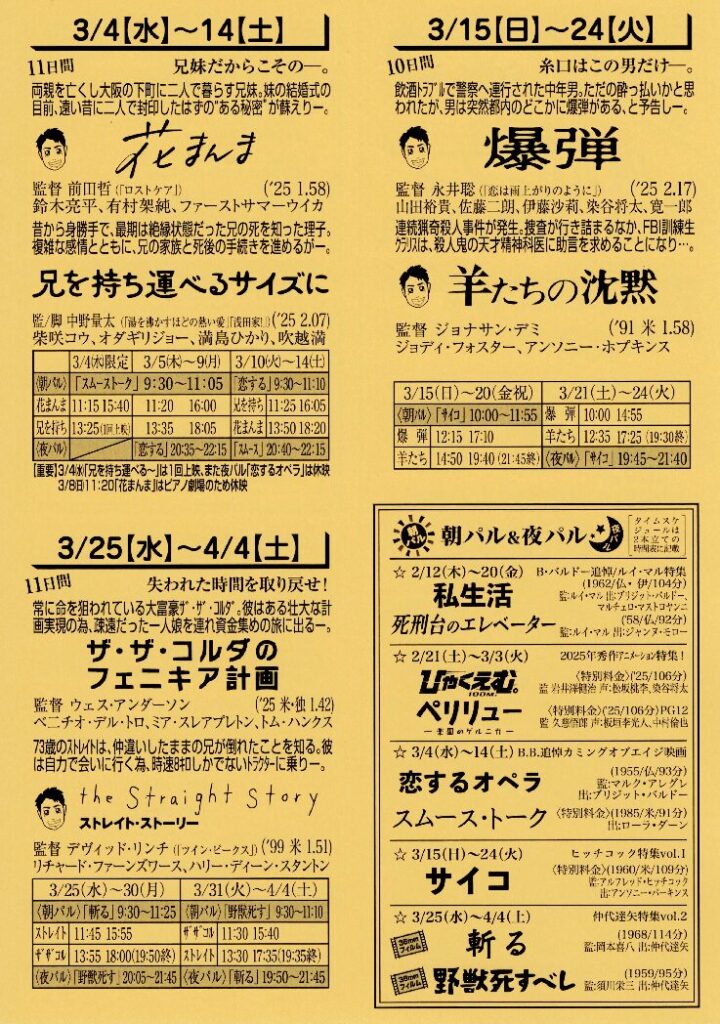 3/4【水】～14【土】
11日間 兄妹だからこその―。
両親を亡くし大阪の下町に二人で暮らす兄妹。妹の結婚式の
目前、遠い昔に二人で封印したはずの“ある秘密”が蘇えりー。
花まんま
監督 前田哲(「ロストケア」) ('25 1.58)
鈴木亮平、有村架純、ファーストサマーウイカ
昔から身勝手で、最期は絶縁状態だった兄の死を知った理子。
複雑な感情とともに、兄の家族と死後の手続きを進めるがー。
兄を持ち運べるサイズに
監/脚 中野量太(「湯を沸かすほどの熱い愛」「浅田家!」) ('25 2.07)
柴咲コウ、オダギリジョー、満島ひかり、吹越満
3/4(水)限定 3/5(木)～9(月) 3/10(火)～14(土)
〈朝パル〉「スムーストーク」9:30～11:05 「恋する」9:30～11:10
花まんま 11:15 15:40 11:20 16:00 兄を持ち 11:25 16:05
兄を持ち 13:25(1回上映) 13:35 18:05 花まんま 13:50 18:20
〈夜パル〉 「恋する」20:35～22:15 「スムース」20:40～22:15
【重要】3/4(水)「兄を持ち運べる～」は1回上映、また夜パル「恋するオペラ」は休映
3/8(日)11:20「花まんま」はピアノ劇場のため休映
3/15【日】～24【火】
10日間 糸口はこの男だけ―。
飲酒トラブルで警察へ連行された中年男。ただの酔っ払いかと思
われたが、男は突然都内のどこかに爆弾がある、と予告しー。
爆弾
監督 永井聡(「恋は雨上がりのように」) ('25 2.17)
山田裕貴、佐藤二朗、伊藤沙莉、染谷将太、寛一郎
連続猟奇殺人事件が発生。捜査が行き詰まるなか、FBI訓練生
クラリスは、殺人鬼の天才精神科医に助言を求めることになり…。
羊たちの沈黙
監督 ジョナサン・デミ ('91 米 1.58)
ジョディ・フォスター、アンソニー・ホプキンス
3/15(日)～20(金祝) 3/21(土)～24(火)
〈朝パル〉「サイコ」10:00～11:55 爆 弾 10:00 14:55
爆 弾 12:15 17:10 羊たち 12:35 17:25 (19:30終)
羊たち 14:50 19:40 (21:45終) 〈夜パル〉「サイコ」19:45～21:40
3/25【水】～4/4【土】
11日間 失われた時間を取り戻せ!
常に命を狙われている大富豪ザ・ザ・コルダ。彼はある壮大な計
画実現の為、疎遠だった一人娘を連れ資金集めの旅に出るー。
ザ・ザ・コルダの
フェニキア計画
監督 ウェス・アンダーソン ('25 米・独 1.42)
ベニチオ・デル・トロ、ミア・スレアプレトン、トム・ハンクス
73歳のストレイトは、仲違いしたままの兄が倒れたことを知る。彼
は自力で会いに行く為、時速8キロしかでないトラクターに乗りー。
the Straight Story
ストレイト・ストーリー
監督 デヴィッド・リンチ(「ツイン・ピークス」) ('99 米 1.51)
リチャード・ファーンズワース、ハリー・ディーン・スタントン
3/25(水)～30(月) 3/31(火)～4/4(土)
〈朝パル〉「斬る」9:30～11:25 〈朝パル〉「野獣死す」9:30～11:10
ストレイト 11:45 15:55 ザ・ザ・コルダ 11:30 15:40
ザ・ザ・コルダ 13:55 18:00(19:50終) ストレイト 13:30 17:35(19:35終)
〈夜パル〉「野獣死す」20:05～21:45 〈夜パル〉「斬る」19:50～21:45
朝パル 朝パル&夜パル 夜パル
タイムスケ
ジュールは
2本立ての
時間表に記載
☆ 2/12(木)～20(金) B・バルドー追悼/ルイ・マル特集
私生活 (1962/仏・伊/104分)
監:ルイ・マル 出:ブリジット・バルドー、
マルチェロ・マストロヤンニ
死刑台のエレベーター ('58/仏/92分)
監:ルイ・マル 出:ジャンヌ・モロー
☆ 2/21(土)～3/3(火) 2025年秀作アニメーション特集!
ひゃくえむ。 〈特別料金〉('25/106分)
100M.
監 岩井澤健治 声:松坂桃李、染谷将太
ペリリュー 〈特別料金〉('25/106分)PG12
―楽園のゲルニカ― 監 久慈悟郎 声:板垣李光人、中村倫也
☆ 3/4(水)～14(土) B.B.追悼カミングオブエイジ映画
恋するオペラ (1955/仏/93分)
監:マルク・アレグレ
出:ブリジット・バルドー
スムース・トーク 〈特別料金〉(1985/米/91分)
出:ローラ・ダーン
☆ 3/15(日)～24(火) ヒッチコック特集vol.1
サイコ 〈特別料金〉(1960/米/109分)
監:アルフレッド・ヒッチコック
出:アンソニー・パーキンス
☆ 3/25(水)～4/4(土) 仲代達矢特集vol.2
35mmフィルム 斬る (1968/114分)
監:岡本喜八 出:仲代達矢
35mmフィルム 野獣死すべし (1959/95分)
監:須川栄三 出:仲代達矢